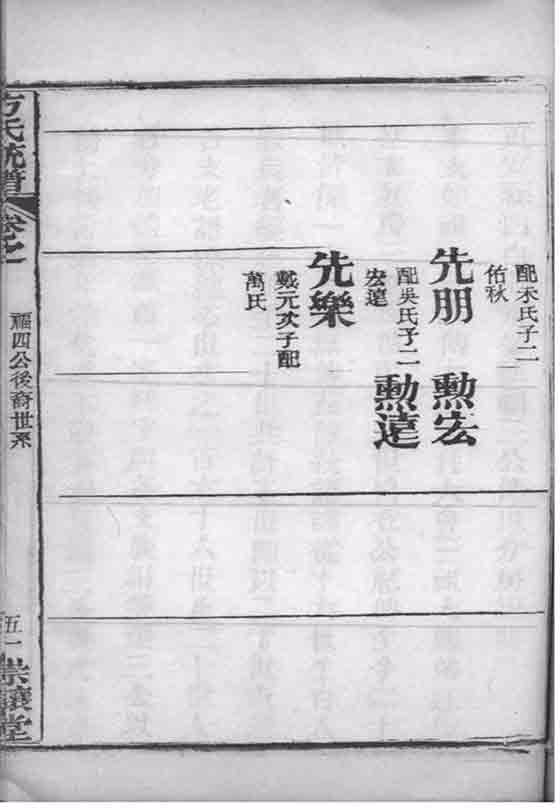 配朱氏子二
佑秋
先朋 勲宏
配吳氏子二 勲遠
宏遠
先樂
戴元次子配
萬氏
方氏統譜 卷之一 福四公後裔世系 五一 崇讓堂